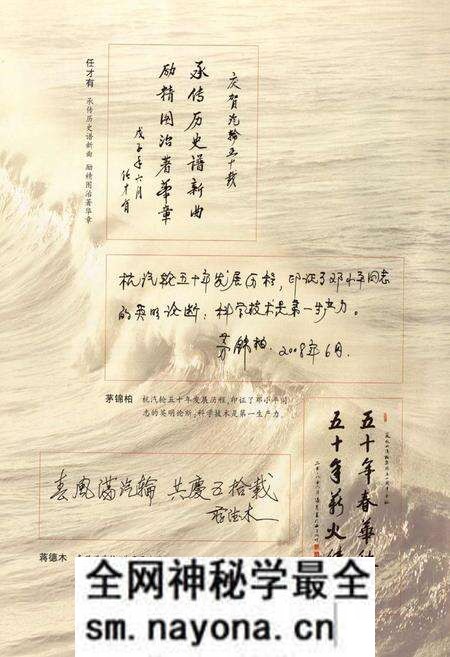 任才有
承传历史谱新曲 励精图治著华章
庆贺汽轮五十载
承传历史谱新曲
励精图治著華章
戊子年六月
任才有
杭汽轮五十年发展历程，印证了邓小平同志
的英明论断：科学技术是第一生产力。
茅锦柏 2008年6月
茅锦柏
杭汽轮五十年发展历程，印证了邓小平同
志的英明论断：科学技术是第一生产力。
五十年春華
五十年薪火
春風满汽輪 共慶五拾载
蒋德木
蒋德木
全网神秘学最全
sm.nayona.cn